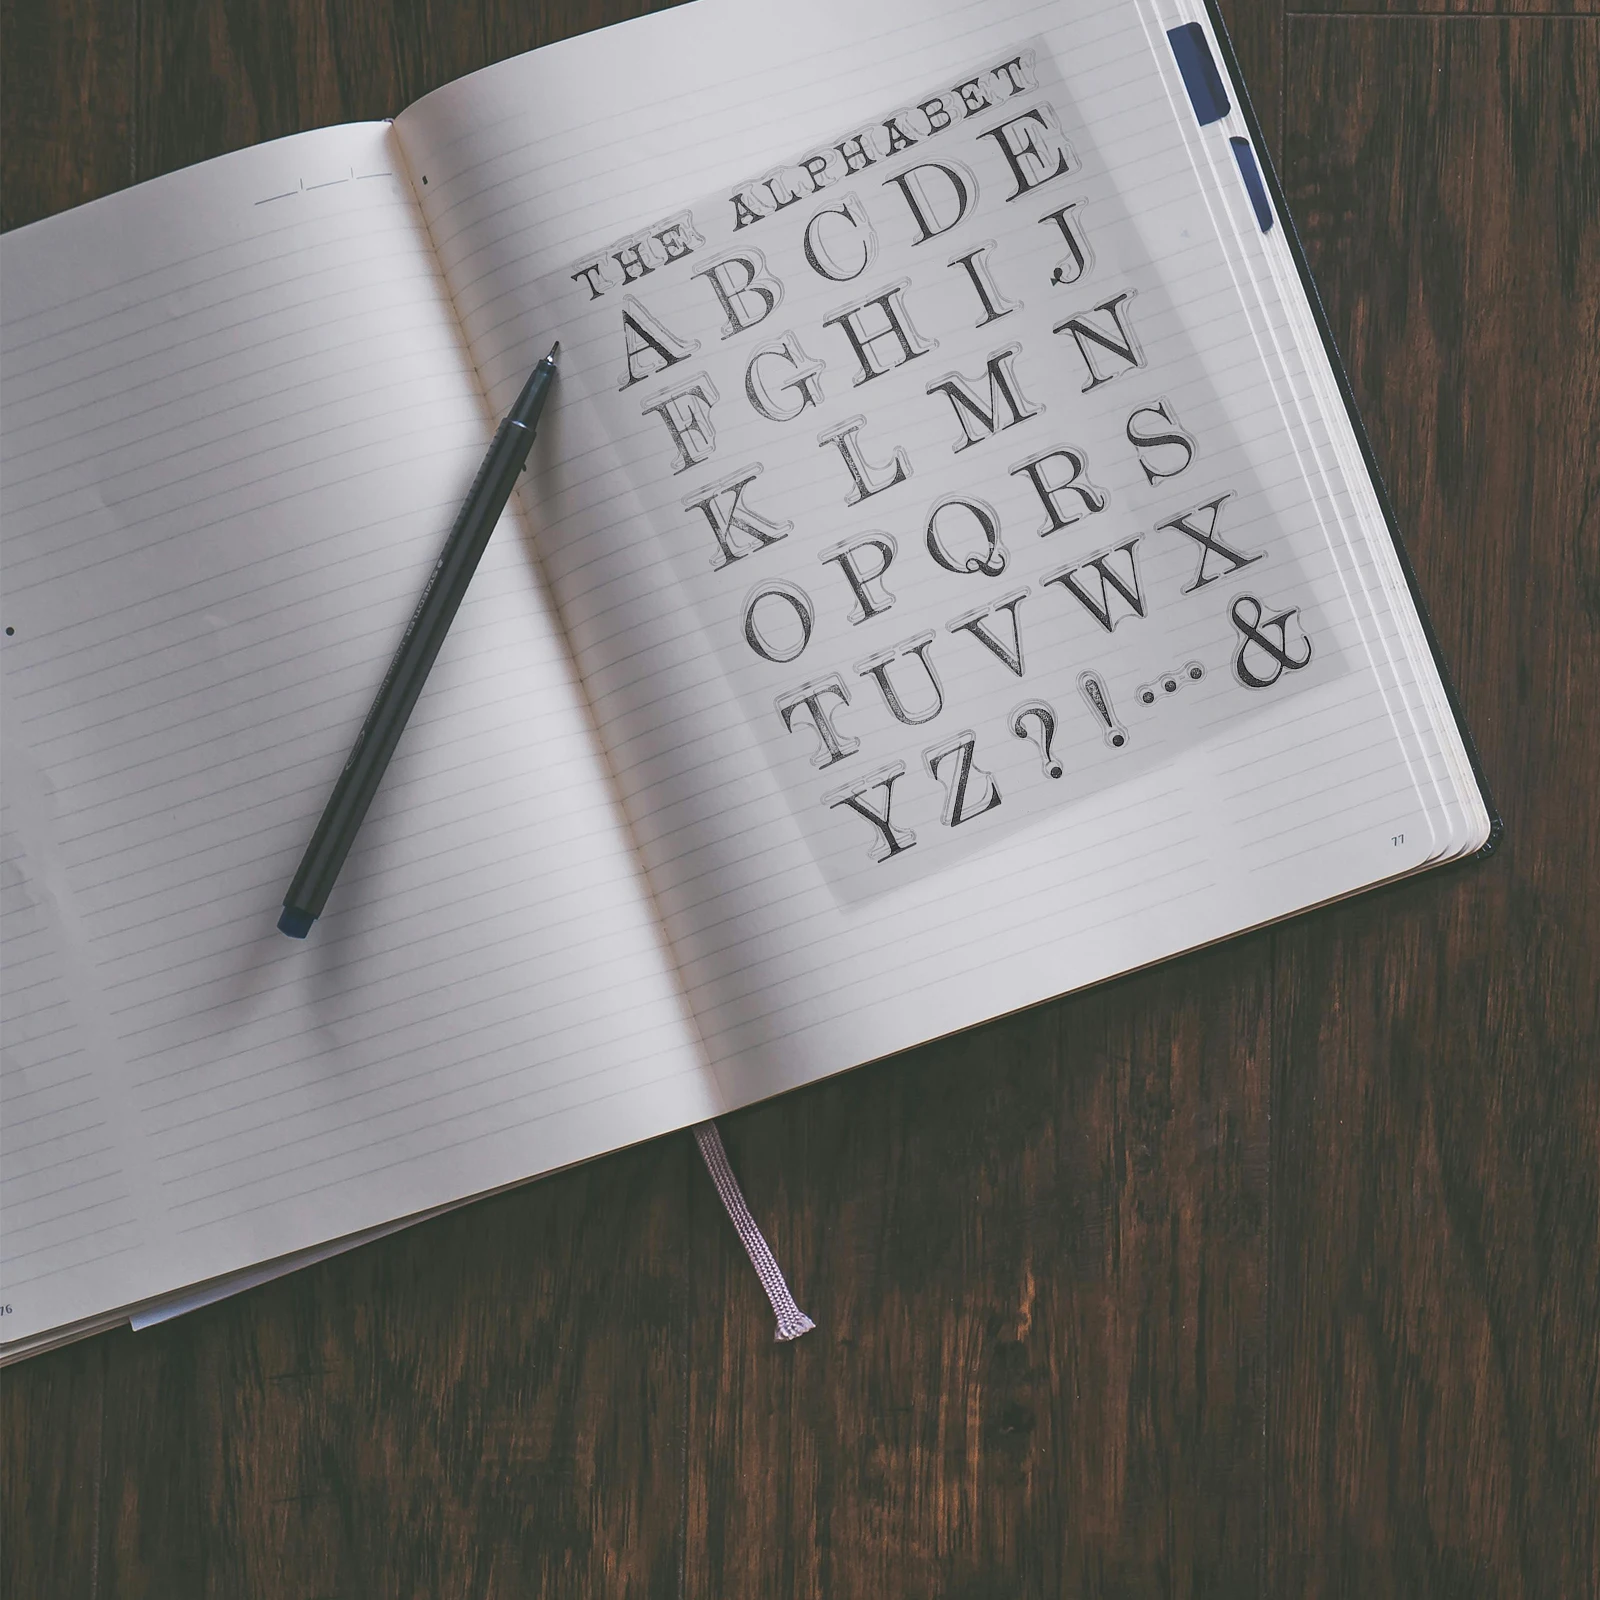 THE ALPHABET
A B C D E
F G H I J
K L M N
O P Q R S
T U V W X
Y Z ? ! ... &
77
76